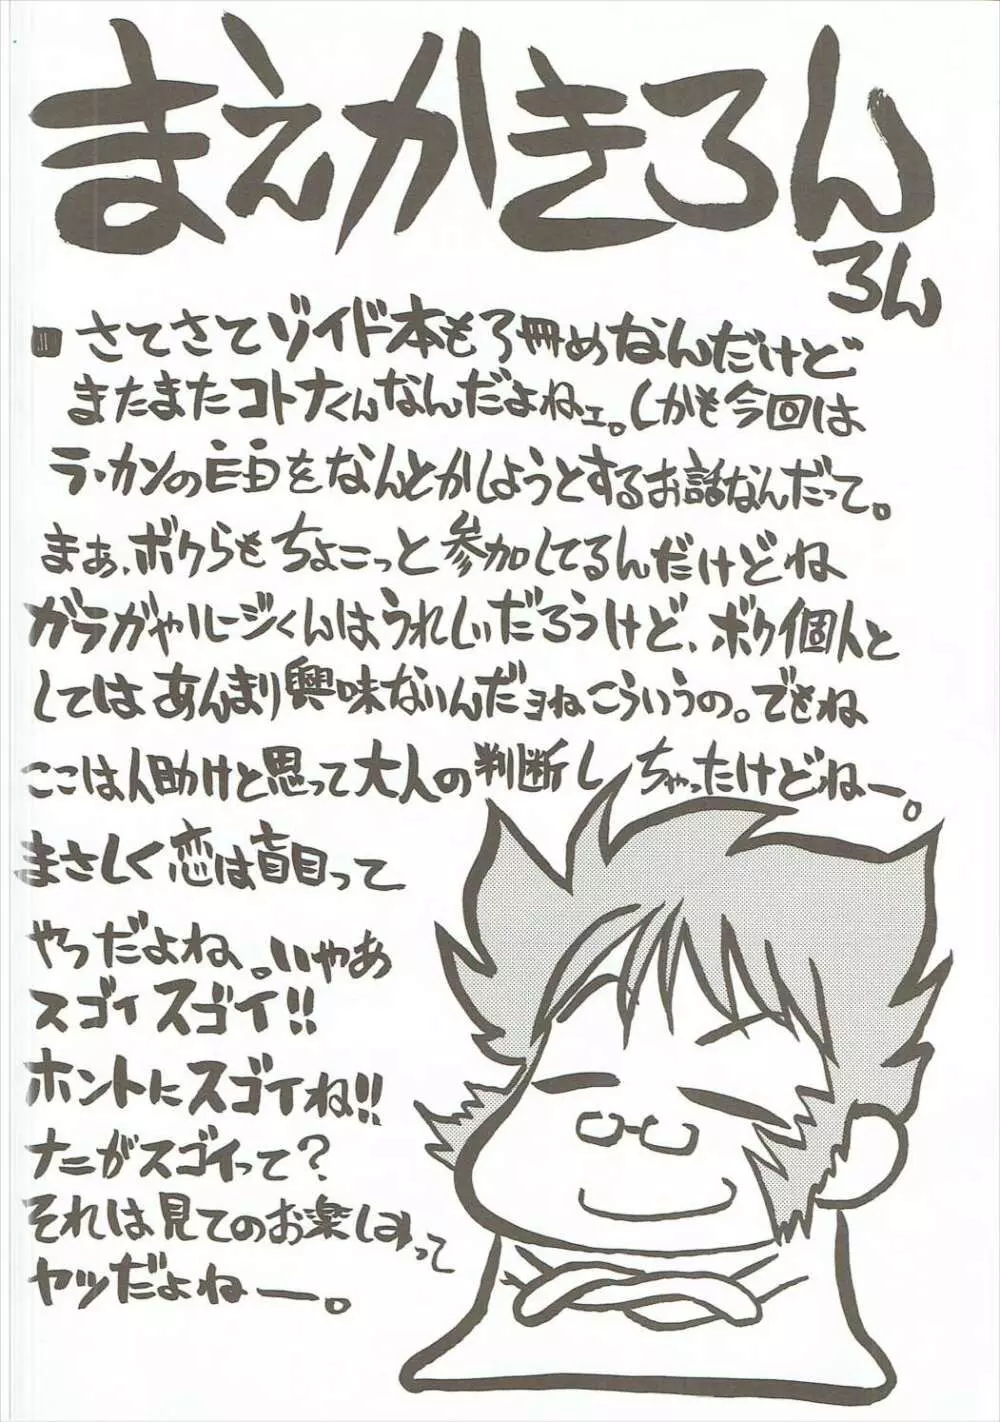 まえかきろん
ろん
さてさてゾイド本も3冊めなんだけど
またまたコトナくんなんだよねェ。しかも今回は
ラ・カンの自由をなんとかしようとするお話なんだって。
まぁ、ボクらもちょこっと参加してるんだけどね
ガラガやルージくんはうれしいだろうけど、ボク個人と
してはあんまり興味ないんだヨねこういうの。でもね
ここは人助けと思って大人の判断しちゃったけどねー。
まさしく恋は盲目って
やつだよね、。いやあ
スゴイスゴイ!!
ホントにスゴイね!!
ナニがスゴイって?
それは見てのお楽しみって
ヤツだよねー。